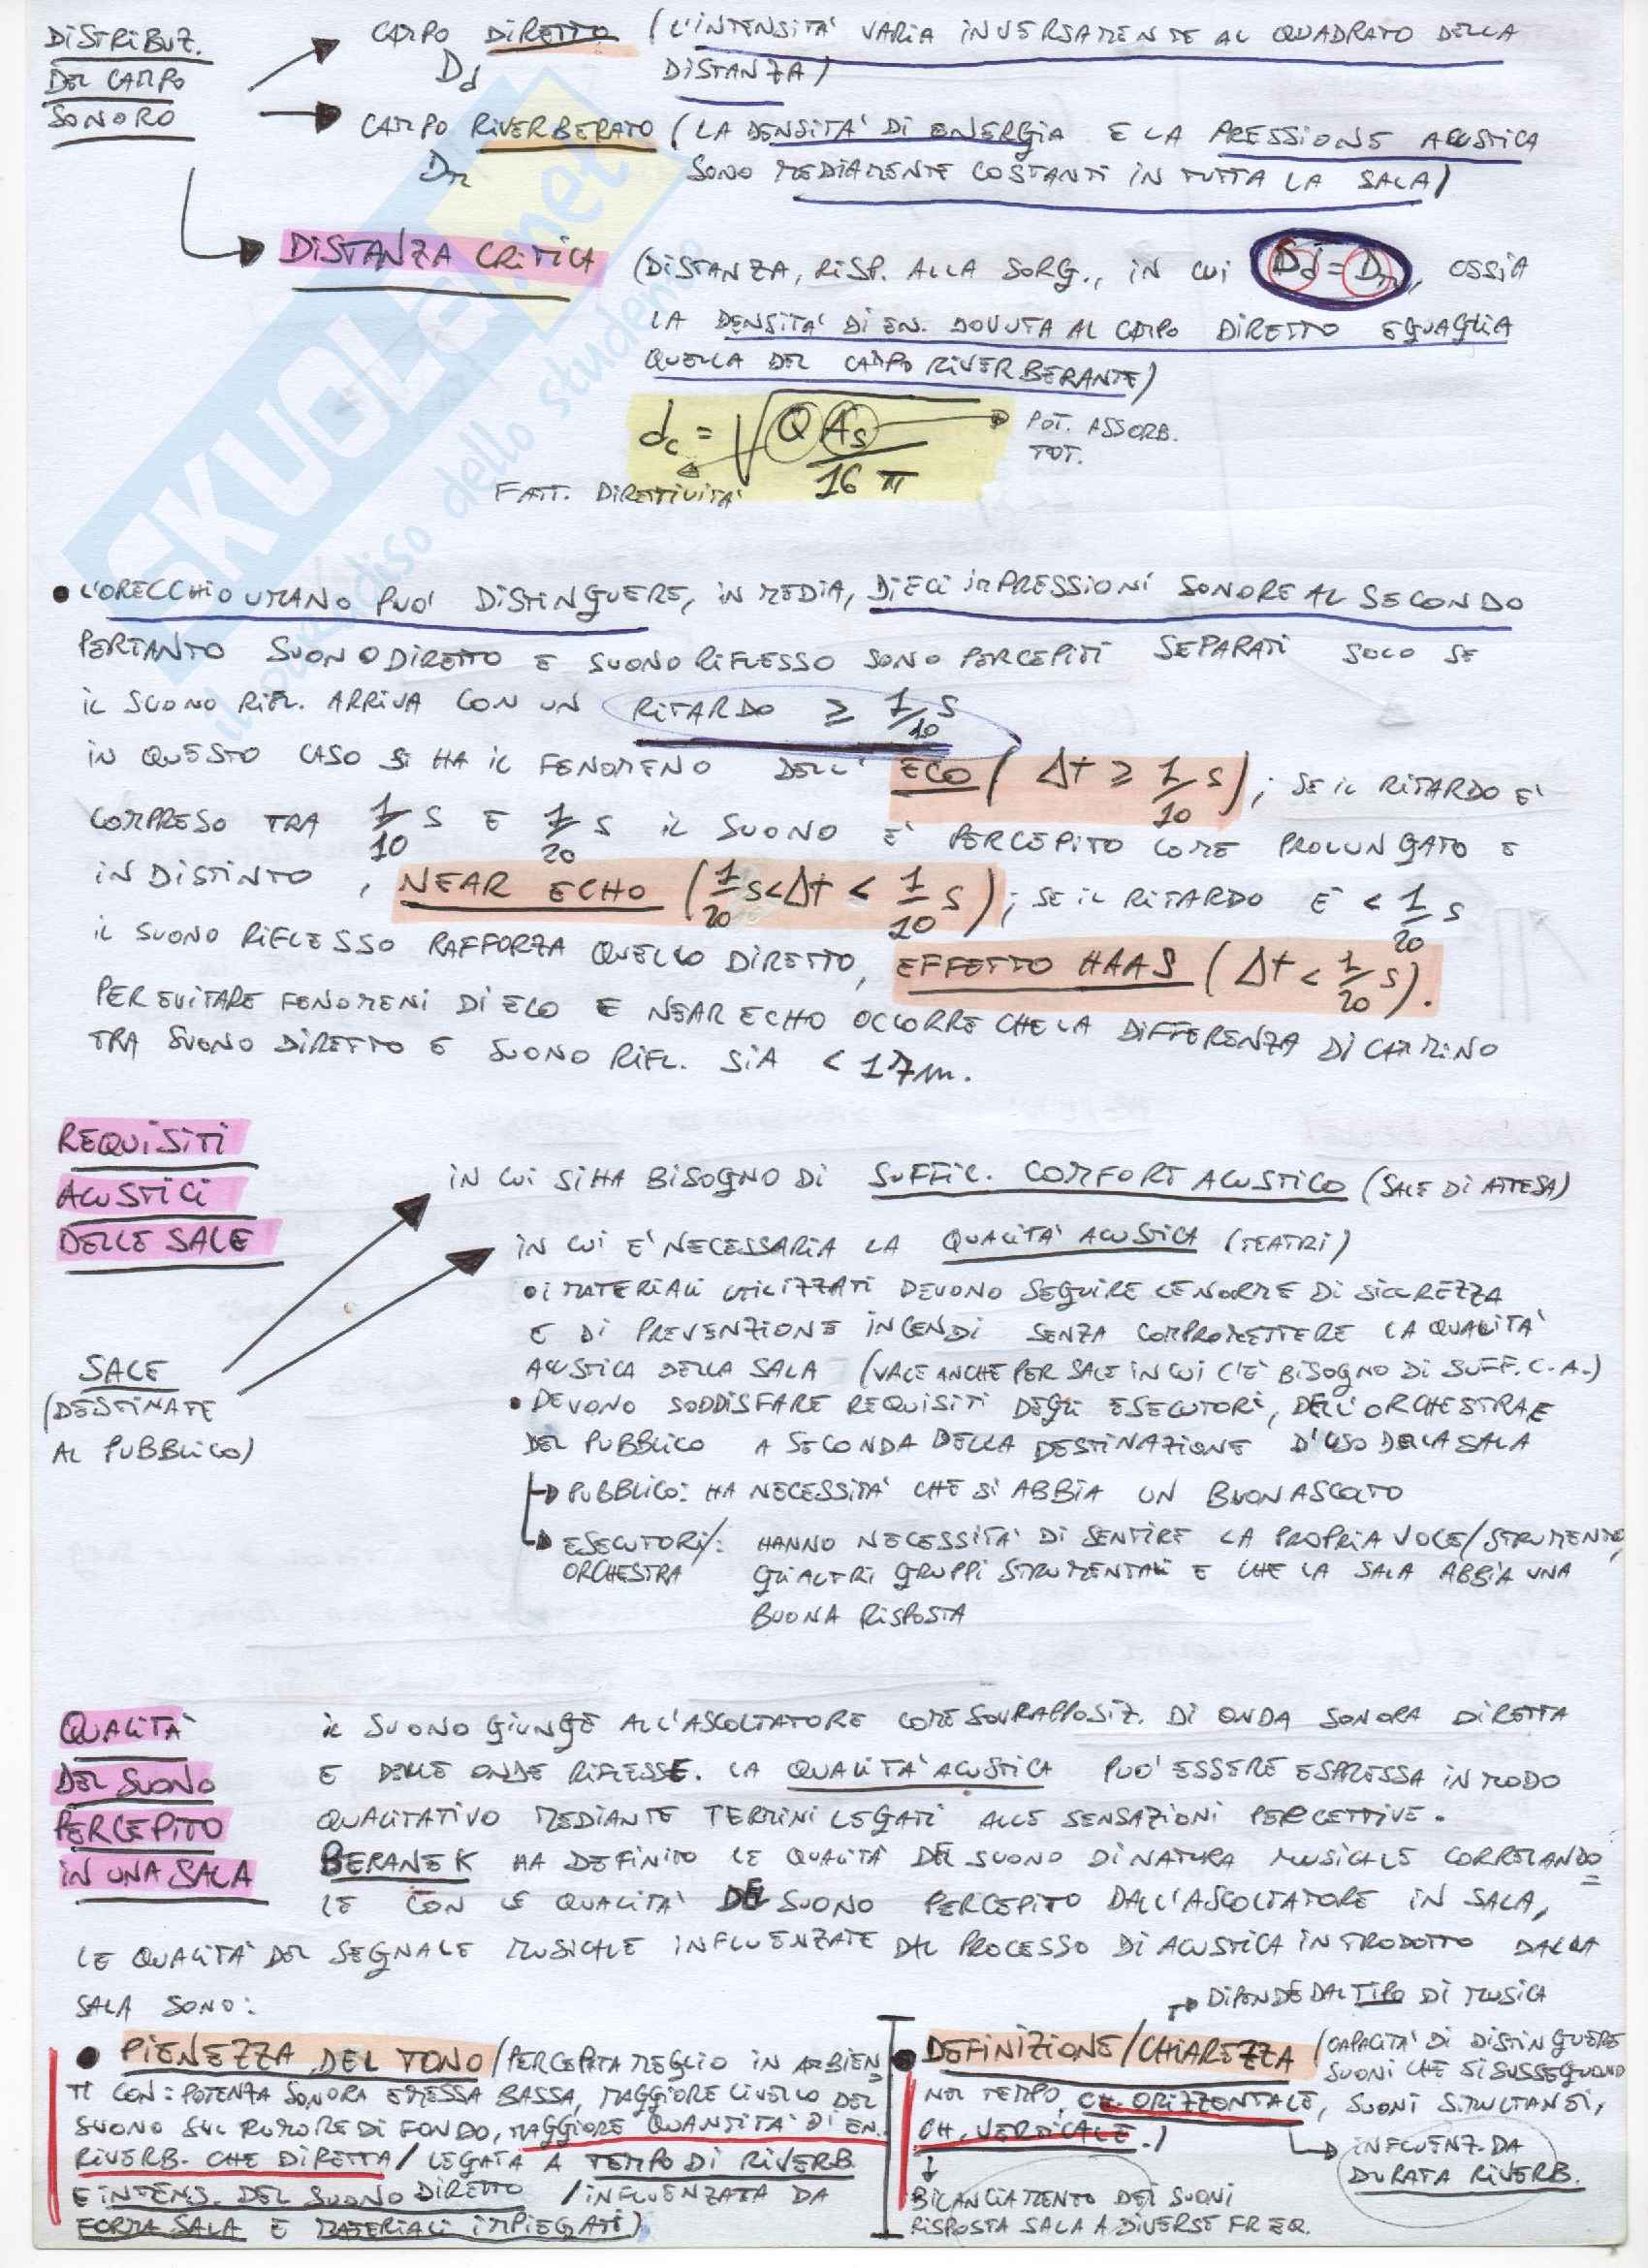 DISTRIBUZ.
DEL CAMPO
SONORO
CAMPO DIRETTO (L'INTENSITA' VARIA INVERSAMENTE AL QUADRATO DELLA
Dd DISTANZA)
CAMPO RIVERBERATO (LA DENSITA' DI ENERGIA E LA PRESSIONE ACUSTICA
Dr SONO MEDIAMENTE COSTANTI IN TUTTA LA SALA)
DISTANZA CRITICA (DISTANZA, RISP. ALLA SORG., IN CUI Dd = Dr, OSSIA
LA DENSITA' DI EN. DOVUTA AL CAMPO DIRETTO EGUAGLIA
QUELLA DEL CAMPO RIVERBERANTE)
dc = √(Q As / 16 π)
POT. ASSORB.
TOT.
FATT. DIRETTIVITA'
SKUOLA.net
il paradiso dello studente
• L'ORECCHIO UMANO PUO' DISTINGUERE, IN MEDIA, DIECI IMPRESSIONI SONORE AL SECONDO
PERTANTO SUONO DIRETTO E SUONO RIFLESSO SONO PERCEPITI SEPARATI SOLO SE
IL SUONO RIFL. ARRIVA CON UN RITARDO ≥ 1/10 S
IN QUESTO CASO SI HA IL FENOMENO DELL' ECO (Δt ≥ 1/10 S); SE IL RITARDO E'
COMPRESO TRA 1/10 S E 1/20 S IL SUONO E' PERCEPITO COME PROLUNGATO E
INDISTINTO, NEAR ECHO (1/20 S < Δt < 1/10 S); SE IL RITARDO E' < 1/20 S
IL SUONO RIFLESSO RAFFORZA QUELLO DIRETTO, EFFETTO HAAS (Δt < 1/20 S).
PER EVITARE FENOMENI DI ECO E NEAR ECHO OCCORRE CHE LA DIFFERENZA DI CAMMINO
TRA SUONO DIRETTO E SUONO RIFL. SIA < 17m.
REQUISITI
ACUSTICI
DELLE SALE
SALE
(DESTINATE
AL PUBBLICO)
IN CUI SI HA BISOGNO DI SUFFIC. COMFORT ACUSTICO (SALE DI ATTESA)
IN CUI E' NECESSARIA LA QUALITA' ACUSTICA (TEATRI)
• I MATERIALI UTILIZZATI DEVONO SEGUIRE LE NORME DI SICUREZZA
E DI PREVENZIONE INCENDI SENZA COMPROMETTERE LA QUALITA'
ACUSTICA DELLA SALA (VALE ANCHE PER SALE IN CUI C'E' BISOGNO DI SUFF. C. A.)
• DEVONO SODDISFARE REQUISITI DEGLI ESECUTORI, DELL'ORCHESTRA E
DEL PUBBLICO A SECONDA DELLA DESTINAZIONE D'USO DELLA SALA
PUBBLICO: HA NECESSITA' CHE SI ABBIA UN BUON ASCOLTO
ESECUTORI/: HANNO NECESSITA' DI SENTIRE LA PROPRIA VOCE/STRUMENTO,
ORCHESTRA GLI ALTRI GRUPPI STRUMENTALI E CHE LA SALA ABBIA UNA
BUONA RISPOSTA
QUALITA'
DEL SUONO
PERCEPITO
IN UNA SALA
IL SUONO GIUNGE ALL'ASCOLTATORE COME SOVRAPPOSIZ. DI ONDA SONORA DIRETTA
E DELLE ONDE RIFLESSE. LA QUALITA' ACUSTICA PUO' ESSERE ESPRESSA IN MODO
QUALITATIVO MEDIANTE TERMINI LEGATI ALLE SENSAZIONI PERCETTIVE.
BERANEK HA DEFINITO LE QUALITA' DEL SUONO DI NATURA MUSICALE CORRELANDO=
LE CON LE QUALITA' DEL SUONO PERCEPITO DALL'ASCOLTATORE IN SALA,
LE QUALITA' DEL SEGNALE MUSICALE INFLUENZATE DAL PROCESSO DI ACUSTICA INTRODOTTO DALLA
SALA SONO:
• PIENEZZA DEL TONO (PERCEPITA MEGLIO IN AMBIEN=
TI CON: POTENZA SONORA EMESSA BASSA, MAGGIORE LIVELLO DEL
SUONO SUL RUMORE DI FONDO, MAGGIORE QUANTITA' DI EN.
RIVERB. CHE DIRETTA / LEGATA A TEMPO DI RIVERB
E INTENS. DEL SUONO DIRETTO / INFLUENZATA DA
FORMA SALA E MATERIALI IMPIEGATI)
DIPENDE DAL TIPO DI MUSICA
• DEFINIZIONE/CHIAREZZA (CAPACITA' DI DISTINGUERE
SUONI CHE SI SUSSEGUONO
NEL TEMPO, CH. ORIZZONTALE, SUONI SIMULTANEI,
CH. VERTICALE.)
INFLUENZ. DA
DURATA RIVERB.
BILANCIAMENTO DEI SUONI
RISPOSTA SALA A DIVERSE FREQ.